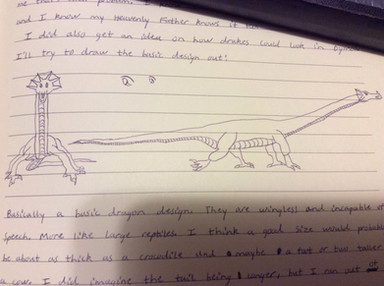 me that
and I know my heavenly Father knows it
I did also get an idea on how drakes could look in
I'll try to draw the basic design out!
Basically a basic dragon design. They are wingless and incapable of
speech. More like large reptiles. I think a good size would probabl
be about as thick as a crocodile and maybe a foot or two taller
a cow. I did imagine the tail being longer, but I ran out of